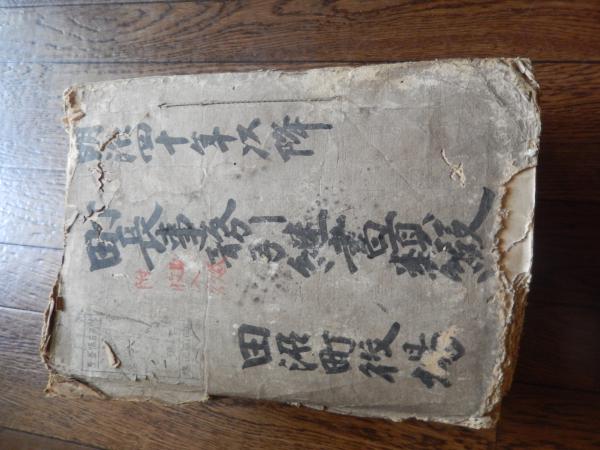 明治四十年以降
町長事務引継書類綴
附 収入役
田沼町役場